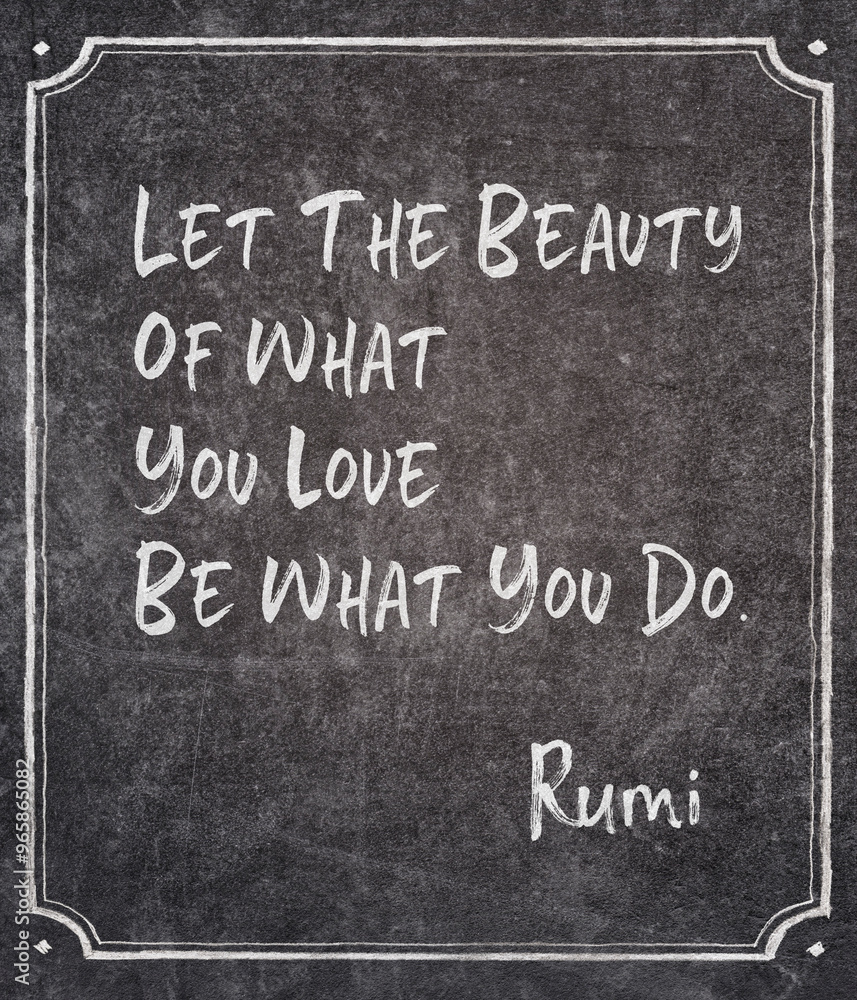 Let The Beauty
Of What
You Love
Be What You Do.
Rumi
Adobe Stock | #965865082